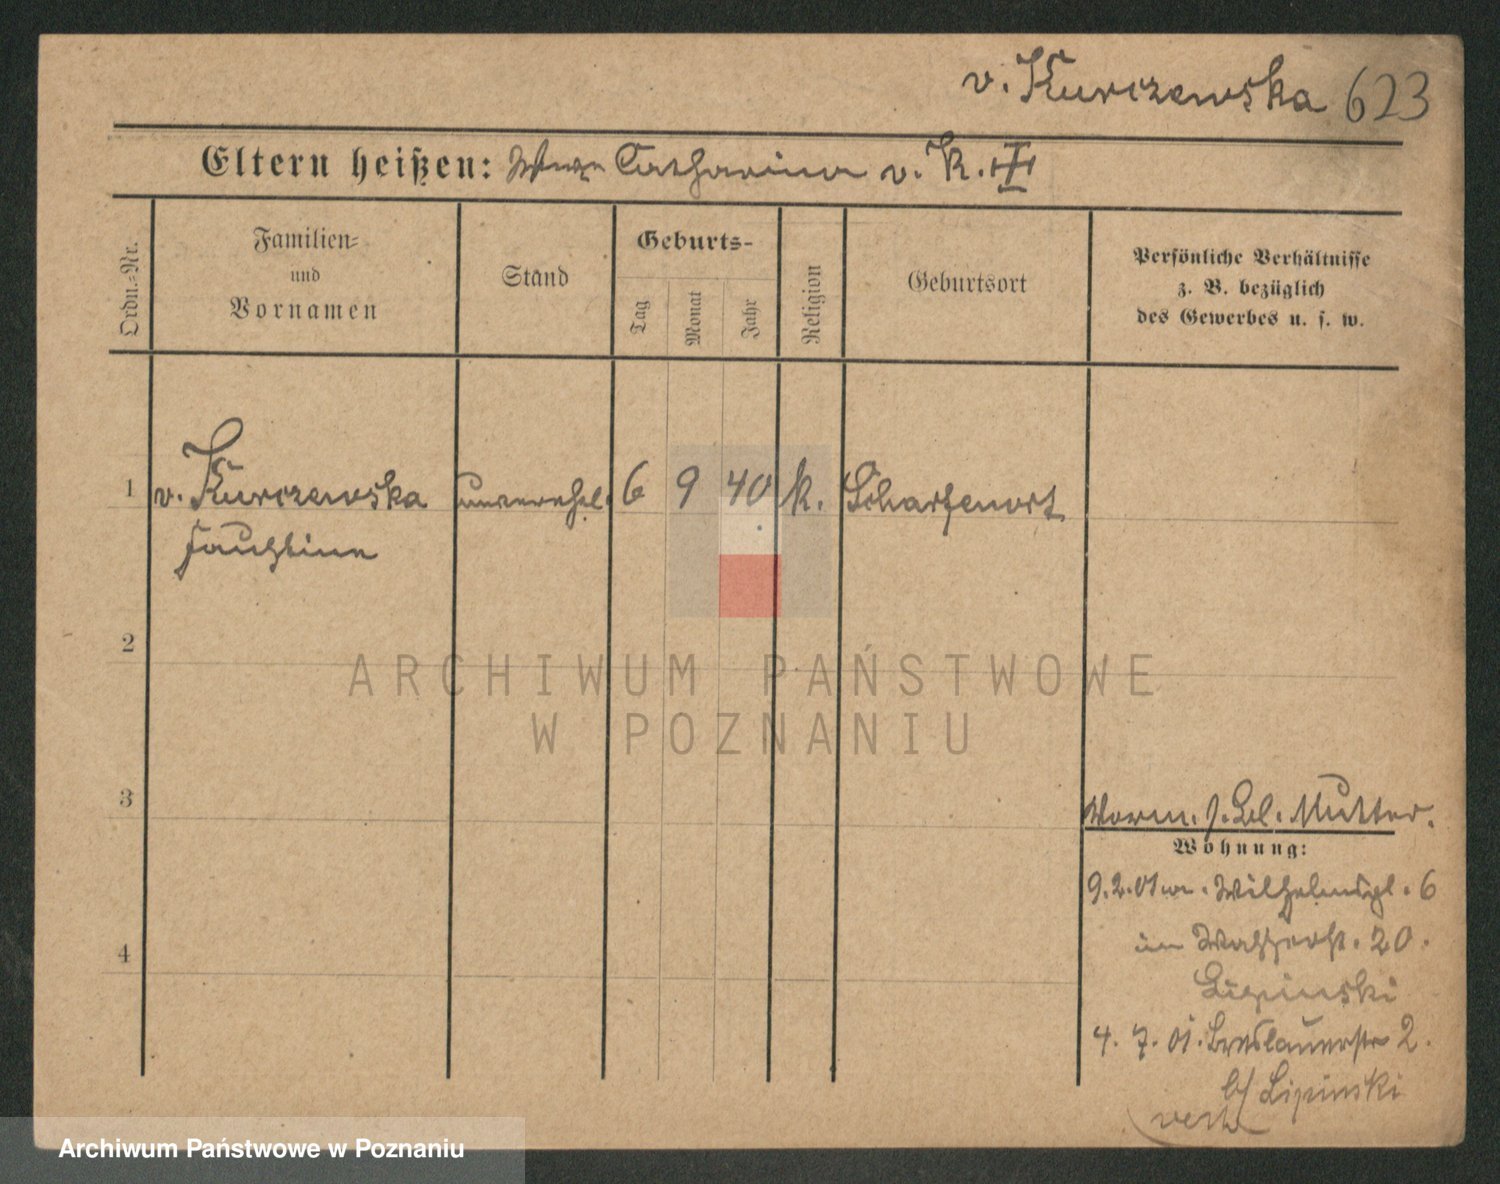 v. Kurczewska 623
Eltern heißen: Catharina v. K. ##
Ordn.-Nr.
Familien-
und
Vornamen
Stand
Geburts-
Tag
Monat
Jahr
Religion
Geburtsort
Persönliche Verhältnisse
z. B. bezüglich
des Gewerbes u. s. w.
1 v. Kurczewska unverehel. 6 9 40 k. Scharfenort
Faustine
2
ARCHIWUM PAŃSTWOWE
W POZNANIU
3
Mutter.
Wohnung:
9.2.01 Wilhelmspl. 6
in Wasserstr. 20.
Lipinski
4
4. 7. 01. Breslauerstr 2.
b/ Lipinski
Archiwum Państwowe w Poznaniu